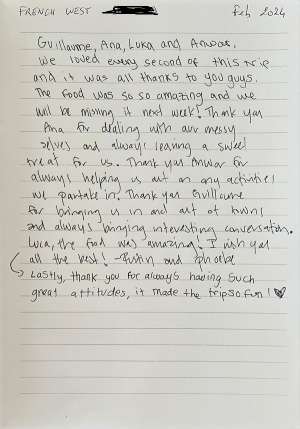 FRENCH WEST
Feb 2024
Guillaume, Ana, Luka and Anwar,
We loved every second of this trip
and it was all thanks to you guys.
The food was so so amazing and we
will be missing it next week! Thank you
Ana for dealing with our messy
selves and always leaving a sweet
treat for us. Thank you Anwar for
always helping us out on any activities
we partake in. Thank you Guillaume
for bringing us in and out of town
and always bringing interesting conversation.
Luca, the food was amazing! I wish you
all the best! -Justin and Phoebe
Lastly, thank you for always having such
great attitudes, it made the trip so fun! ♡